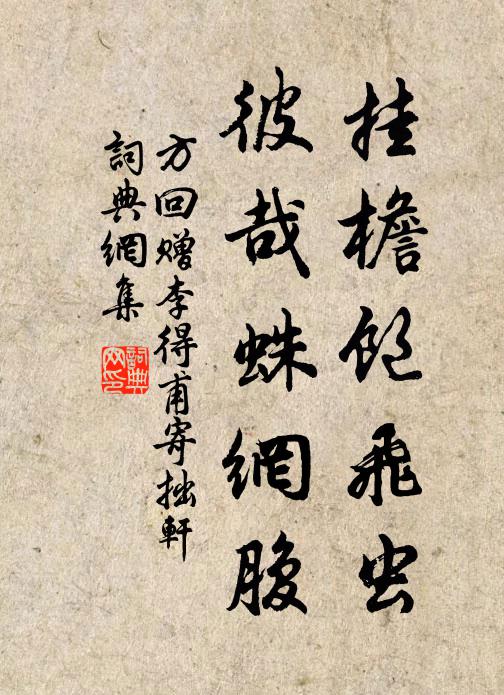 挂檐飽飛虫
彼哉蛛網腹
方回贈李得甫寄拙軒
詞典網集
詞典網印